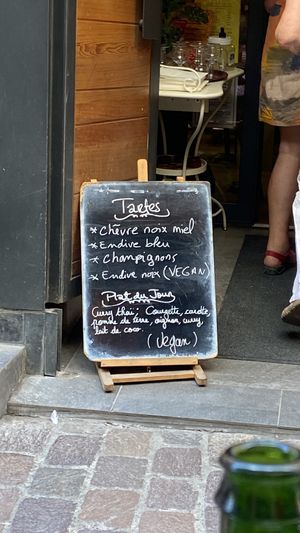 Tartes
* Chèvre noix miel
* Endive bleu
* Champignons
* Endive noix (VEGAN)
Plat du Jour
Curry thaï; Courgette, carotte,
pomme de terre, oignon, curry,
lait de coco.
(Vegan)